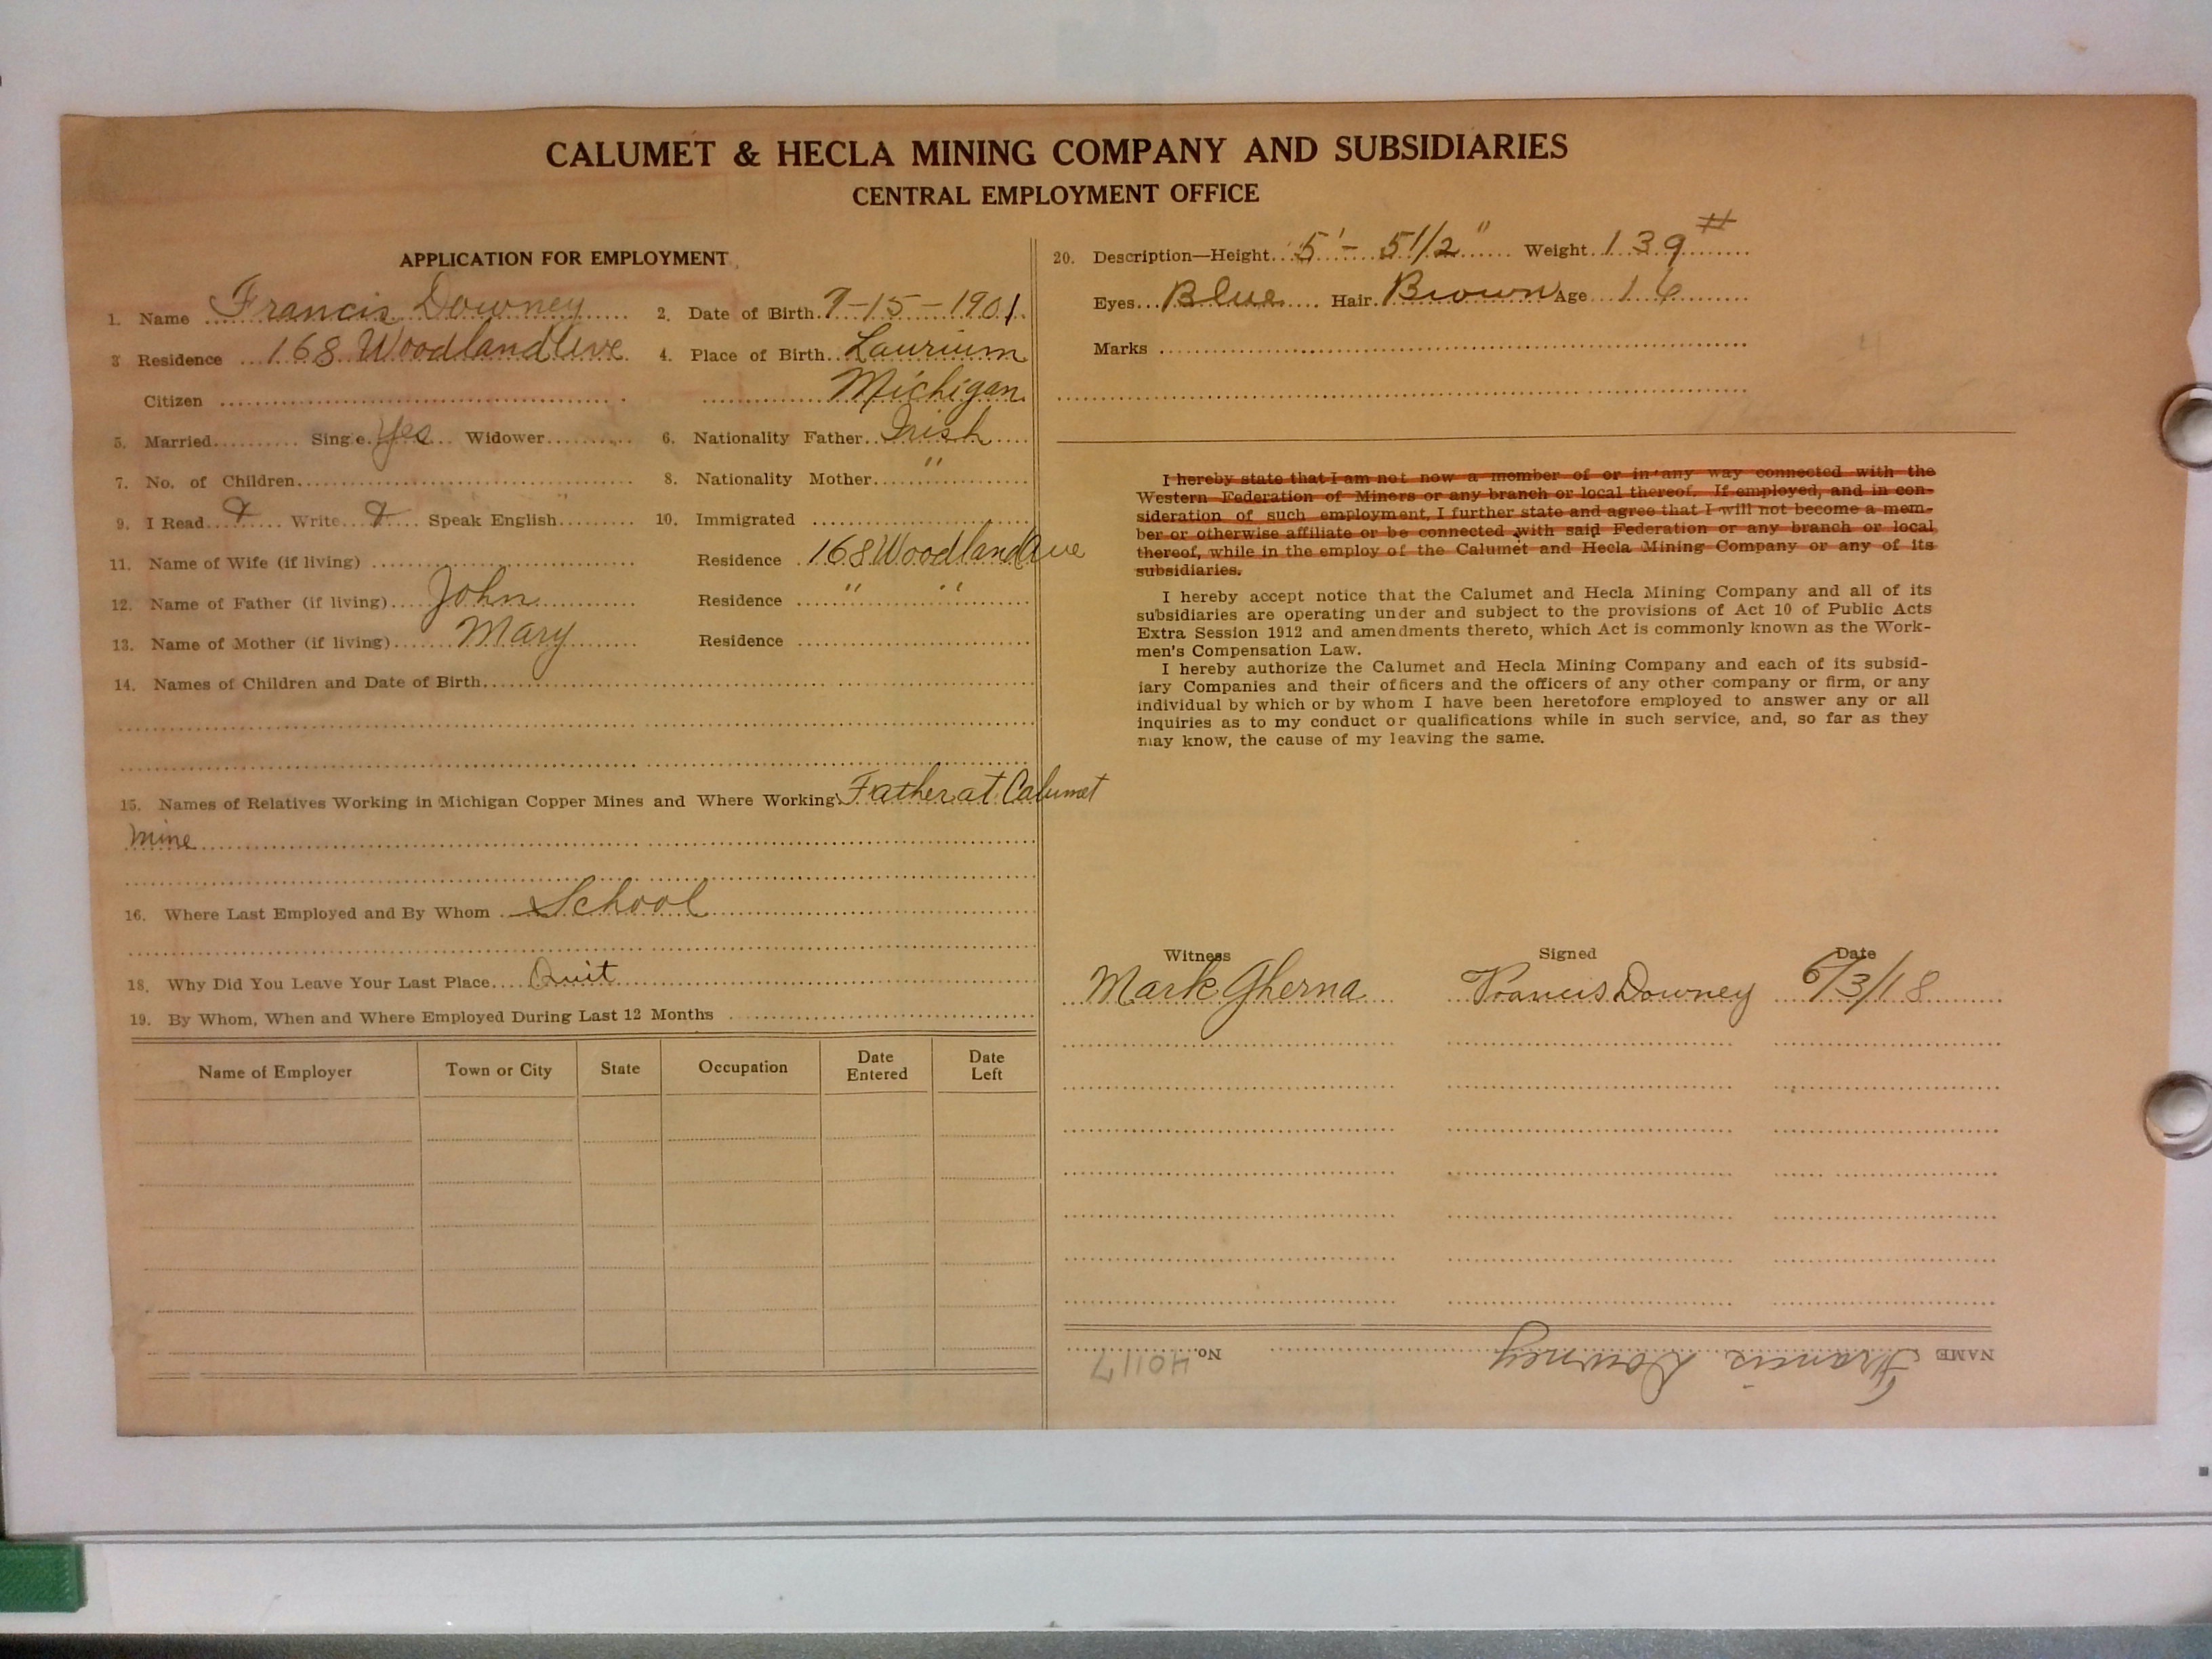 CALUMET & HECLA MINING COMPANY AND SUBSIDIARIES
CENTRAL EMPLOYMENT OFFICE
APPLICATION FOR EMPLOYMENT
1. Name Francis Downey 2. Date of Birth 7-15-1901
3 Residence 168 Woodland Ave 4. Place of Birth Laurium
Citizen Michigan
5. Married Sing e. Yes Widower 6. Nationality Father Irish
7. No. of Children 8. Nationality Mother "
9. I Read Write Speak English 10. Immigrated
11. Name of Wife (if living) Residence 168 Woodland Ave
12. Name of Father (if living) John Residence " "
13. Name of Mother (if living) Mary Residence
14. Names of Children and Date of Birth
15. Names of Relatives Working in Michigan Copper Mines and Where Working Father at Calumet
Mine
16. Where Last Employed and By Whom School
18. Why Did You Leave Your Last Place Quit
19. By Whom, When and Where Employed During Last 12 Months
Name of Employer Town or City State Occupation Date Entered Date Left
20. Description—Height 5'- 5 1/2" Weight 139 #
Eyes Blue Hair Brown Age 16
Marks
I hereby state that I am not now a member of or in any way connected with the
Western Federation of Miners or any branch or local thereof. If employed, and in con-
sideration of such employment, I further state and agree that I will not become a mem-
ber or otherwise affiliate or be connected with said Federation or any branch or local
thereof, while in the employ of the Calumet and Hecla Mining Company or any of its
subsidiaries.
I hereby accept notice that the Calumet and Hecla Mining Company and all of its
subsidiaries are operating under and subject to the provisions of Act 10 of Public Acts
Extra Session 1912 and amendments thereto, which Act is commonly known as the Work-
men's Compensation Law.
I hereby authorize the Calumet and Hecla Mining Company and each of its subsid-
iary Companies and their officers and the officers of any other company or firm, or any
individual by which or by whom I have been heretofore employed to answer any or all
inquiries as to my conduct or qualifications while in such service, and, so far as they
may know, the cause of my leaving the same.
Witness Signed Date
Mark Gherna Francis Downey 6/3/18
NAME Francis Downey No. 40117